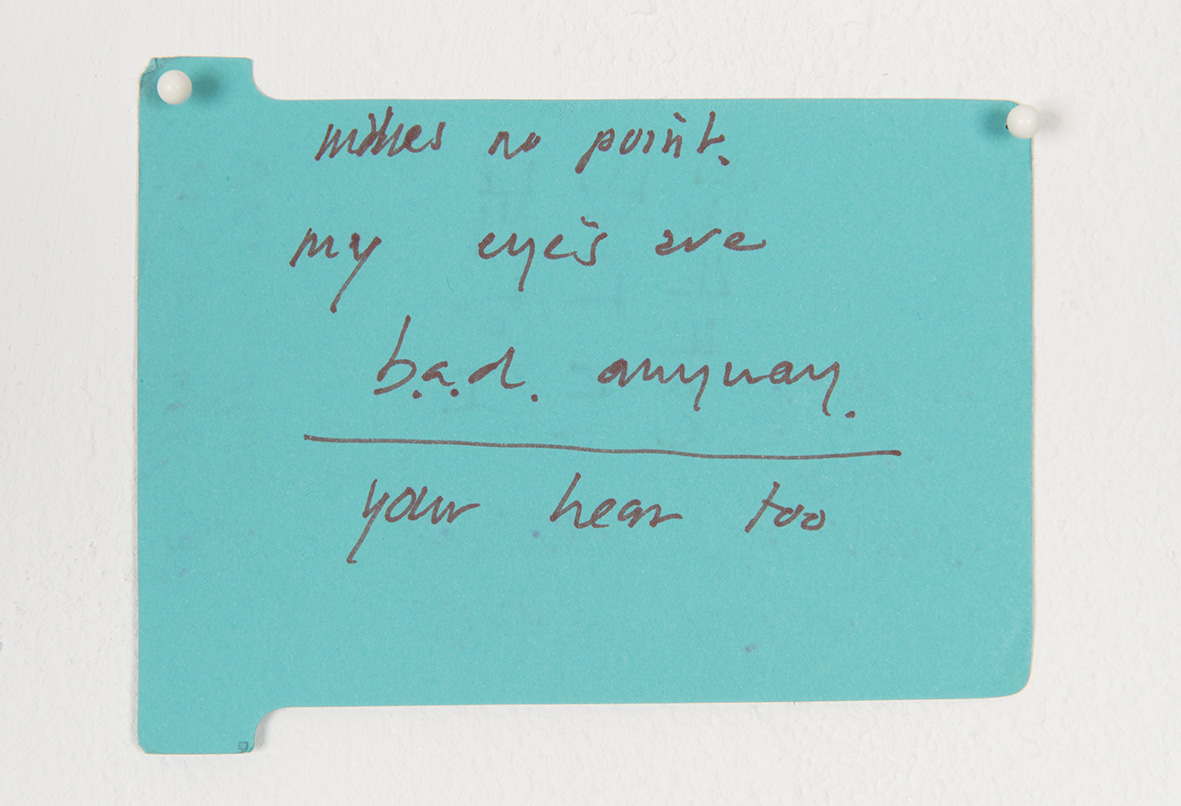 makes no point.
my eyes are
b.a.d. anyway.
your hear too